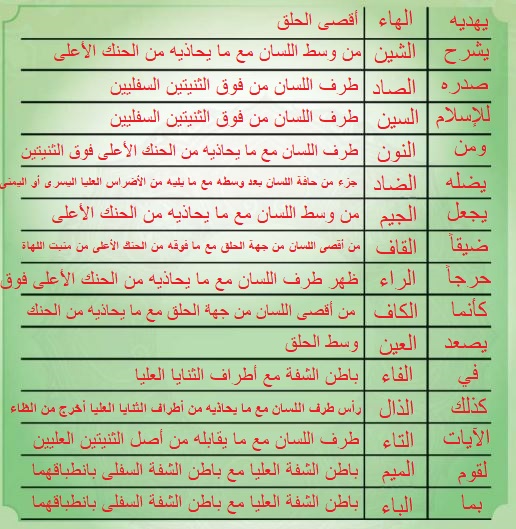 يهديه الهاء أقصى الحلق
يشرح الشين من وسط اللسان مع ما يحاذيه من الحنك الأعلى
صدره الصاد طرف اللسان من فوق الثنيتين السفليين
للإسلام السين طرف اللسان من فوق الثنيتين السفليين
ومن النون طرف اللسان مع ما يحاذيه من الحنك الأعلى فوق الثنيتين
يضله الضاد جزء من حافة اللسان بعد وسطه مع ما يليه من الأضراس العليا اليسرى أو اليمنى
يجعل الجيم من وسط اللسان مع ما يحاذيه من الحنك الأعلى
ضيقاً القاف من أقصى اللسان من جهة الحلق مع ما فوقه من الحنك الأعلى من منبت اللهاة
حرجاً الراء ظهر طرف اللسان مع ما يحاذيه من الحنك الأعلى فوق
كأنما الكاف من أقصى اللسان من جهة الحلق مع ما يحاذيه من الحنك
يصعد العين وسط الحلق
في الفاء باطن الشفة مع أطراف الثنايا العليا
كذلك الذال رأس طرف اللسان مع ما يحاذيه من أطراف الثنايا العليا أخرج من الظاء
الآيات التاء طرف اللسان مع ما يقابله من أصل الثنيتين العليين
لقوم الميم باطن الشفة العليا مع باطن الشفة السفلى بانطباقهما
بما الباء باطن الشفة العليا مع باطن الشفة السفلى بانطباقهما